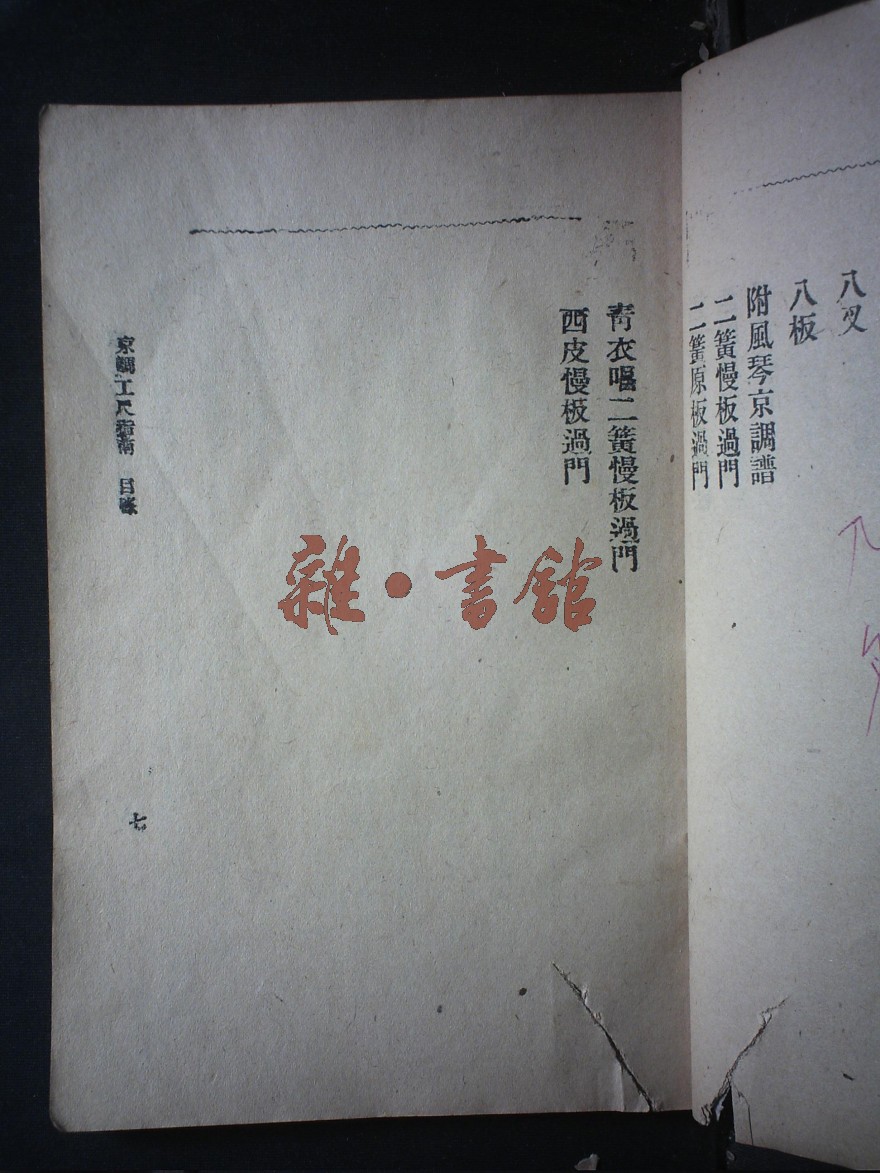 八叉
八板
附風琴京調譜
二簧慢板過門
二簧原板過門
青衣唱二簧慢板過門
西皮慢板過門
京調工尺指南 目錄
七
雜·書館